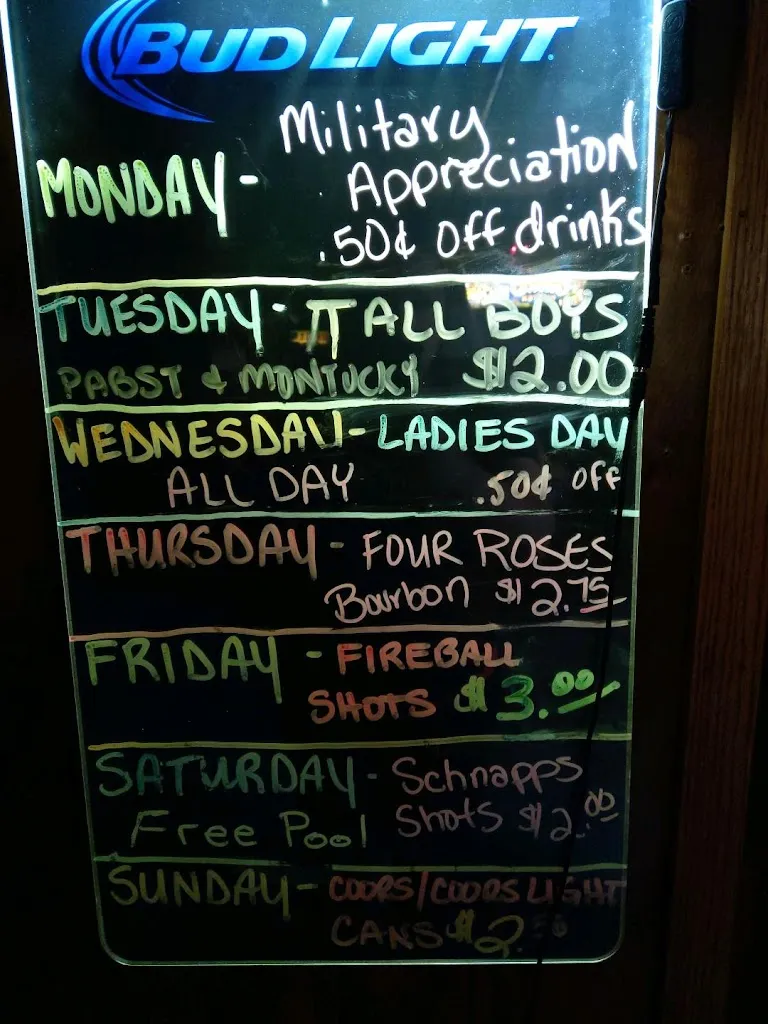 BUD LIGHT
Military
MONDAY - Appreciation
.50¢ off drinks
TUESDAY - TALL BOYS
PABST & MONTUCKY $2.00
WEDNESDAY - LADIES DAY
ALL DAY .50¢ off
THURSDAY - FOUR ROSES
Bourbon $2.75
FRIDAY - FIREBALL
SHOTS $3.00
SATURDAY - Schnapps
Free Pool Shots $2.00
SUNDAY - COORS/COORS LIGHT
CANS $2.50